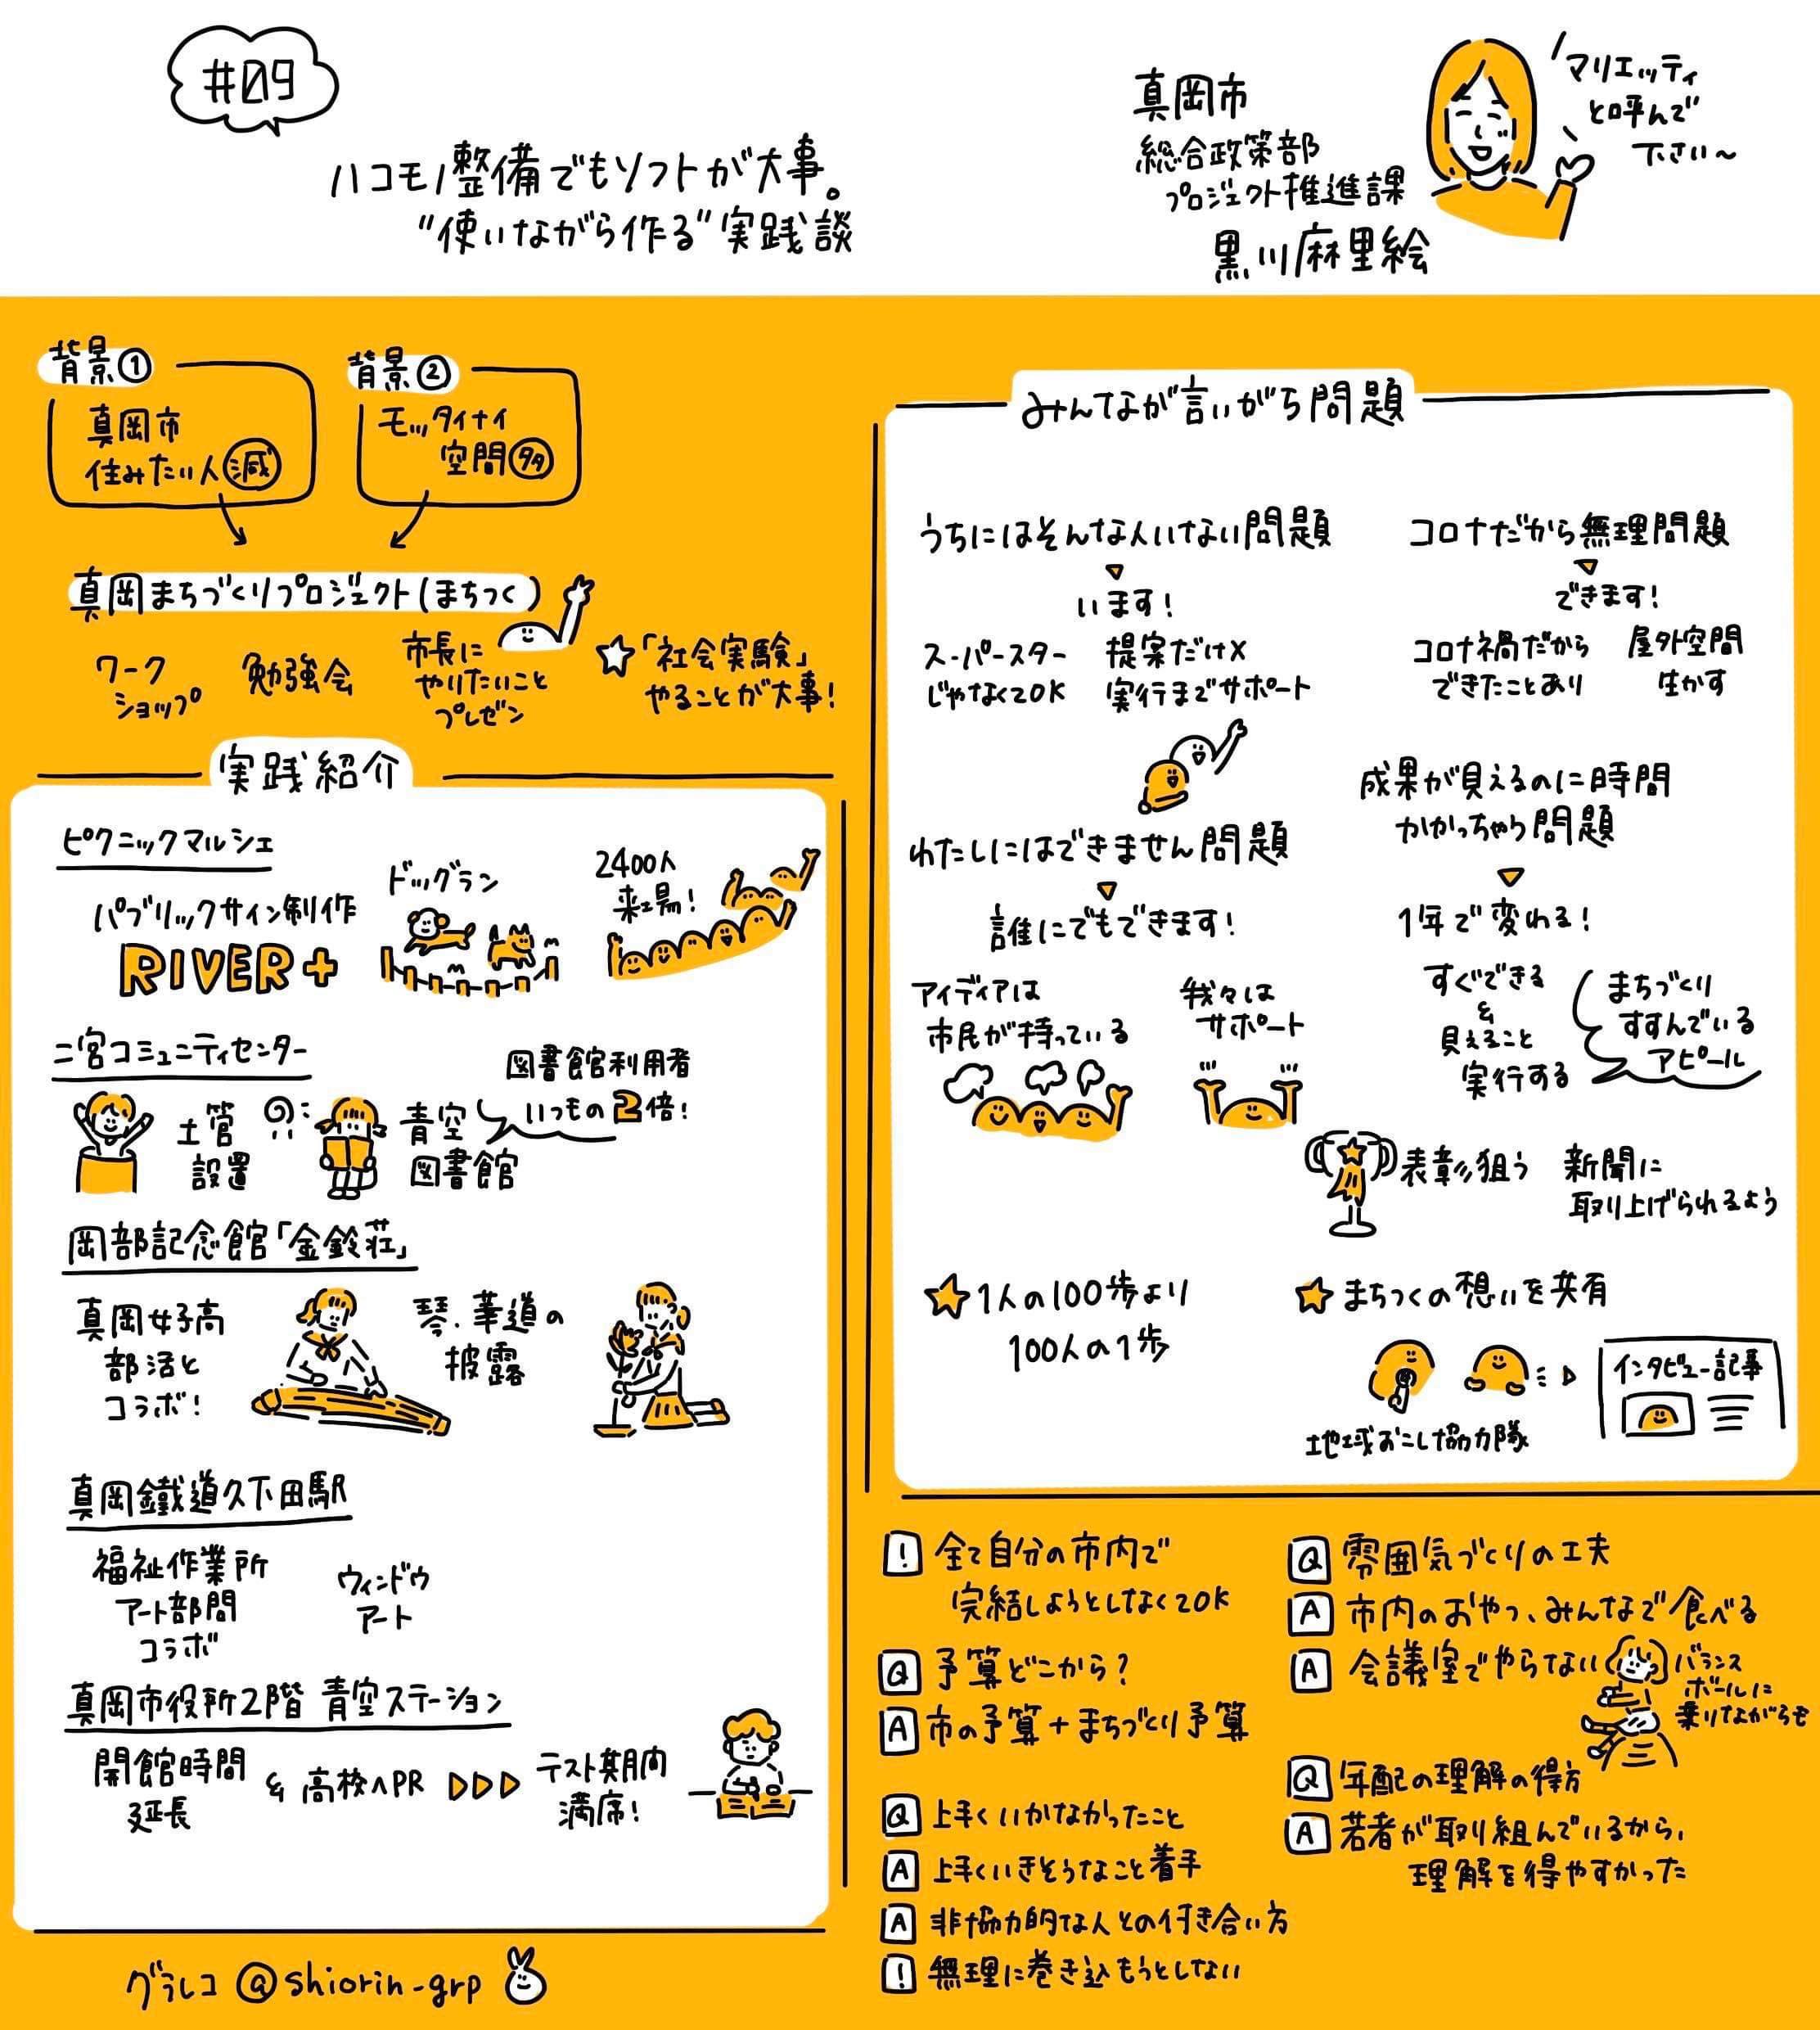 #09
ハコモノ整備でもソフトが大事。
"使いながら作る"実践談
真岡市
総合政策部
プロジェクト推進課
黒川麻里絵
マリエッティ
と呼んで
下さい〜
背景①
真岡市
住みたい人減
背景②
モッタイナイ
空間多
真岡まちづくりプロジェクト(まちつく)
ワーク
ショップ
勉強会
市長に
やりたいこと
プレゼン
☆「社会実験」
やることが大事!
実践紹介
ピクニックマルシェ
パブリックサイン制作
RIVER+
ドッグラン
2400人
来場!
二宮コミュニティセンター
土管
設置
青空
図書館
図書館利用者
いつもの2倍!
岡部記念館「金鈴荘」
真岡女子高
部活と
コラボ!
琴、華道の
披露
真岡鐵道久下田駅
福祉作業所
アート部門
コラボ
ウィンドウ
アート
真岡市役所2階 青空ステーション
開館時間
延長
& 高校へPR ▷▷▷
テスト期間
満席!
グラレコ @shiorin-grp
みんなが言いがち問題
うちにはそんな人いない問題
います!
スーパースター
じゃなくてOK
提案だけ×
実行までサポート
コロナだから無理問題
できます!
コロナ禍だから
できたことあり
屋外空間
生かす
わたしにはできません問題
誰にでもできます!
アイディアは
市民が持っている
我々は
サポート
成果が見えるのに時間
かかっちゃう問題
1年で変わる!
すぐできる
&
見えること
実行する
まちづくり
すすんでいる
アピール
表彰狙う
新聞に
取り上げられるよう
★1人の100歩より
100人の1歩
★まちつくの想いを共有
地域おこし協力隊
インタビュー記事
! 全て自分の市内で
完結しようとしなくてOK
Q 予算どこから?
A 市の予算+まちづくり予算
Q 上手くいかなかったこと
A 上手くいきそうなこと着手
A 非協力的な人との付き合い方
! 無理に巻き込もうとしない
Q 雰囲気づくりの工夫
A 市内のおやつ、みんなで食べる
A 会議室でやらない
バランス
ボールに
乗りながらも
Q 年配の理解の得方
A 若者が取り組んでいるから、
理解を得やすかった